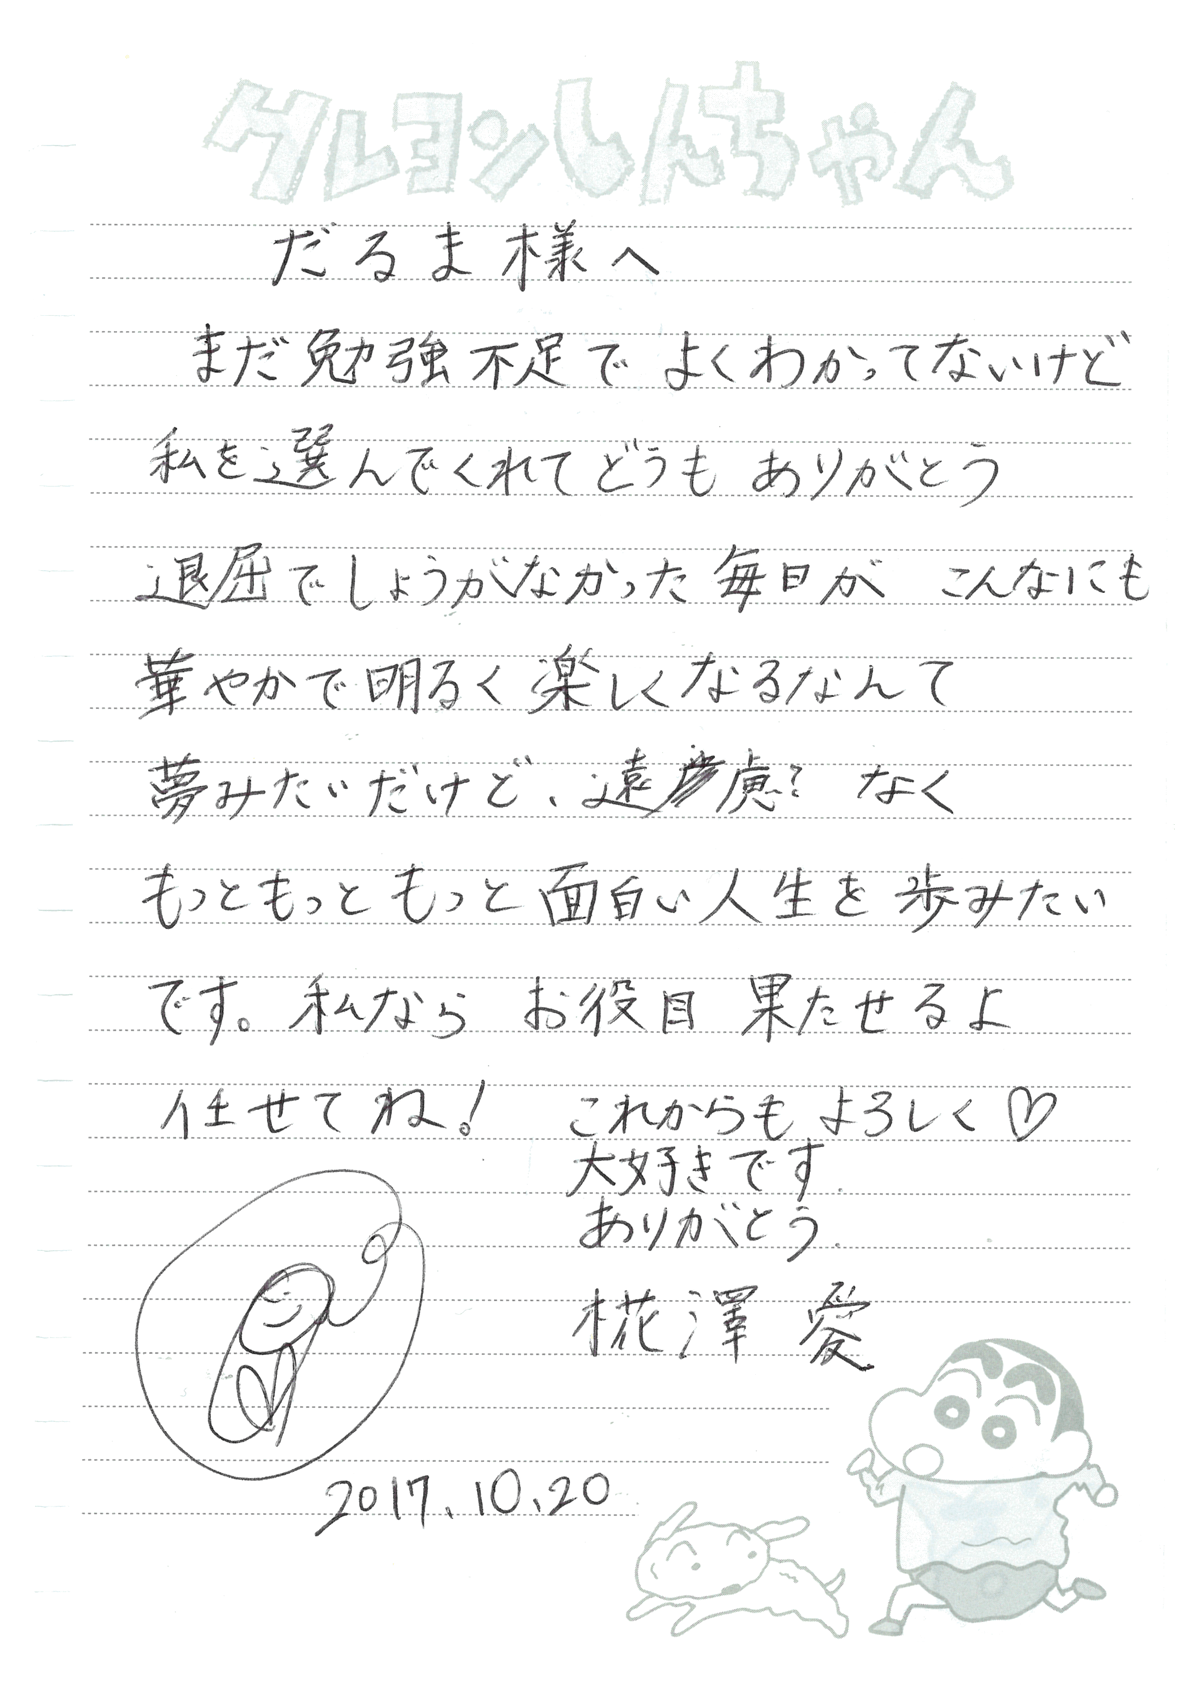 クレヨンしんちゃん
だるま様へ
まだ勉強不足で よくわかってないけど
私を選んでくれてどうも ありがとう
退屈でしょうがなかった毎日が こんなにも
華やかで明るく楽しくなるなんて
夢みたいだけど、遠慮 なく
もっともっともっと面白い人生を歩みたい
です。私なら お役目 果たせるよ
任せてね! これからも よろしく♡
大好きです.
ありがとう.
椛澤 愛
2017.10.20